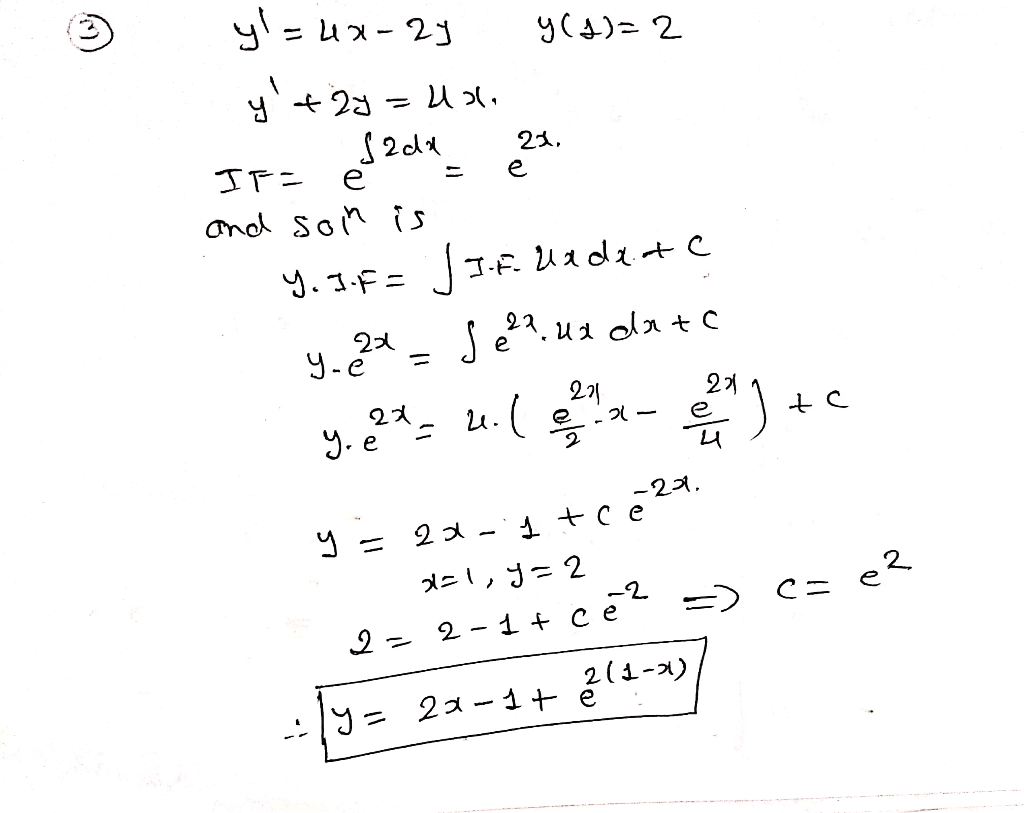 ③ y' = 4x - 2y y(1) = 2
y' + 2y = 4x.
IF = e^{∫2dx} = e^{2x}.
and solⁿ is
y. I.F = ∫ I.F. 4x dx + c
y. e^{2x} = ∫ e^{2x}. 4x dx + c
y. e^{2x} = 4. ( e^{2x}/2 . x - e^{2x}/4 ) + c
y = 2x - 1 + c e^{-2x}.
x=1, y=2
2 = 2 - 1 + c e^{-2} => c = e^2
∴ y = 2x - 1 + e^{2(1-x)}